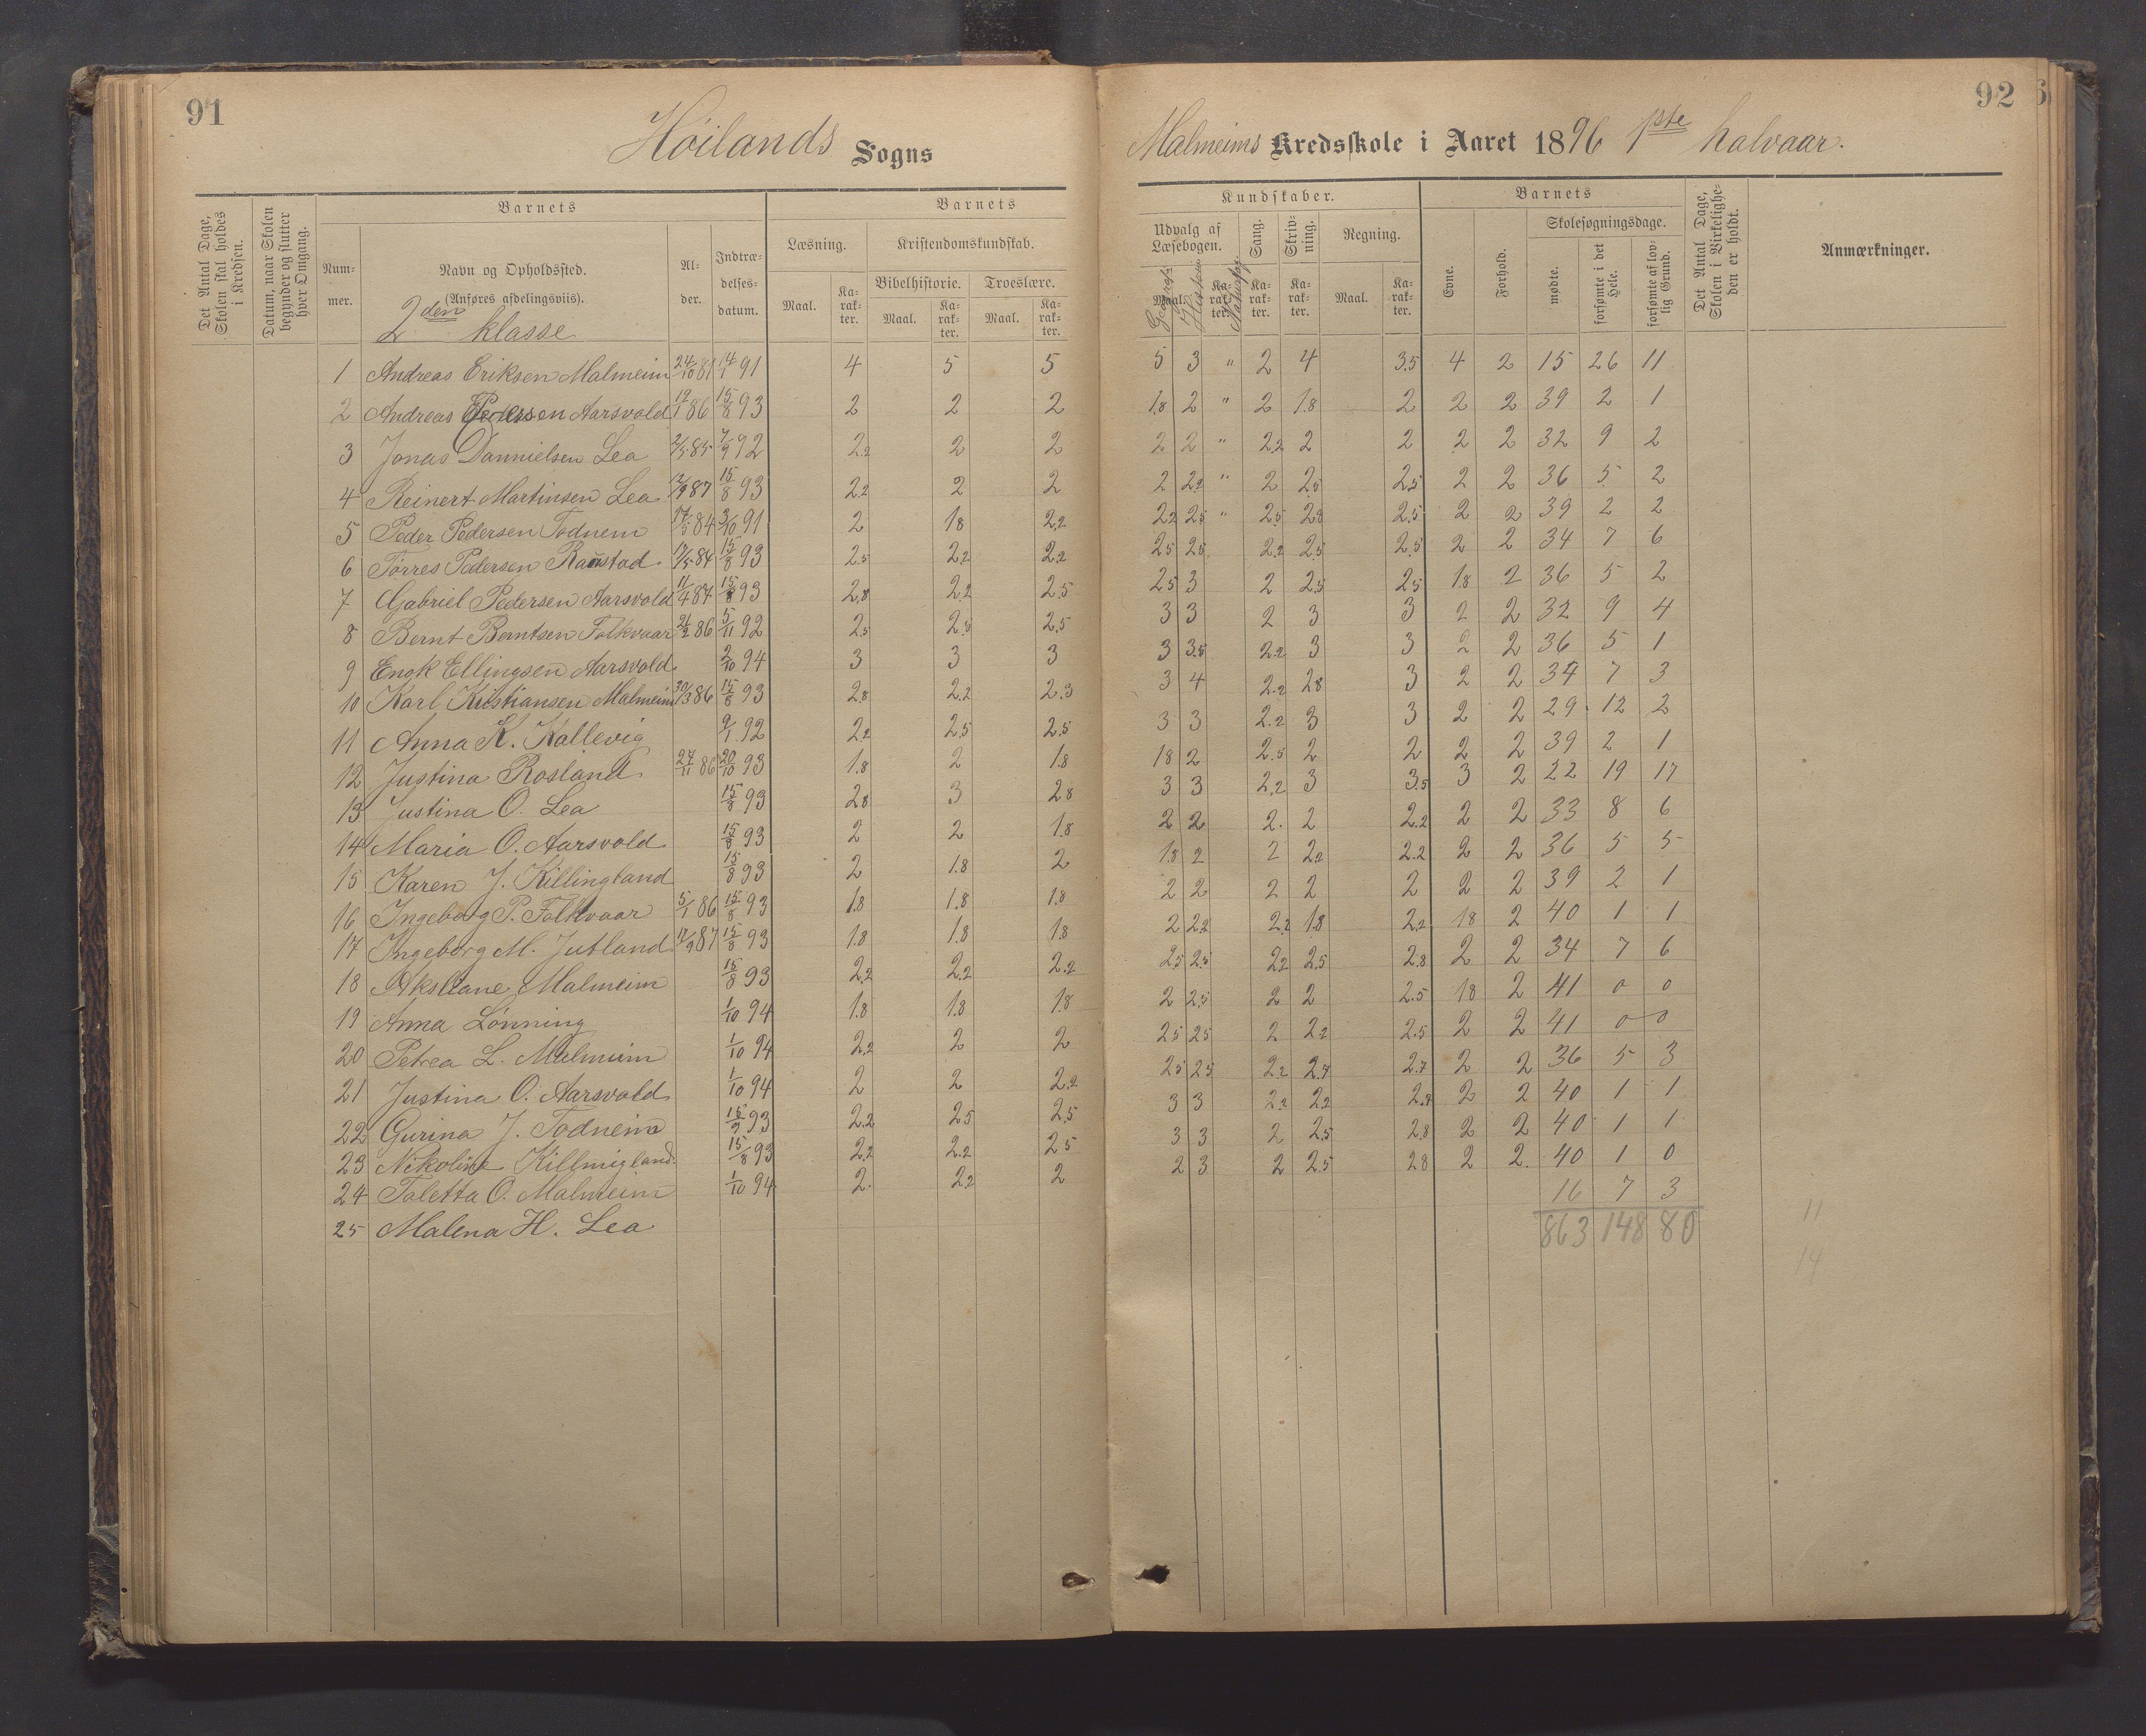 91
Höilands Sogns
Det Antal Dage, Skolen skal holdes i Kredsen.
Datum, naar Skolen begynder og slutter hver Omgang.
Barnets
Barnets
Nummer.
Navn og Opholdssted.
(Anføres afdelingsviis).
2den klasse
Alder.
Indtrædelsesdatum.
Læsning.
Kristendomskundskab.
Bibelhistorie.
Troeslære.
Maal.
Karakter.
Maal.
Karakter.
Maal.
Karakter.
1 Andreas Eriksen Malmeim 24/10 81 14/1 91 4 5 5
2 Andreas Pedersen Aarsvold 19/1 86 15/8 93 2 2 2
3 Jonas Dannielsen Lea 2/5 85 7/9 92 2.2 2 2
4 Reinert Martinsen Lea 12/9 87 15/8 93 2.2 2 2
5 Peder Pedersen Todnem 17/5 84 3/10 91 2 1.8 2.2
6 Tørres Pedersen 17/5 84 15/8 93 2.5 2.2 2.2
7 Gabriel Pedersen Aarsvold 11/4 87 15/8 93 2.8 2.2 2.5
8 Bernt Berntsen Folkvaar 21/2 86 5/11 92 2.5 2.5 2.5
9 Enok Ellingsen Aarsvold 2/10 94 3 3 3
10 Karl Kristiansen Malmeim 30/3 86 15/8 93 2.8 2.2 2.3
11 Anna K. Kallevig 9/1 92 2.2 2.5 2.5
12 Justina Rosland 27/11 86 20/10 93 1.8 2 1.8
13 Justina O. Lea 15/8 93 2.8 3 2.8
14 Maria O. Aarsvold 15/8 93 2 2 1.8
15 Karen J. Killingland 15/8 93 2 1.8 2
16 Ingeborg P. Folkvaar 5/1 86 15/8 93 1.8 1.8 1.8
17 Ingeborg M. Jutland 17/9 87 15/8 93 1.8 1.8 1.8
18 Akseliane Malmeim 15/8 93 2.2 2.2 2.2
19 Anna Lønning 1/10 94 1.8 1.8 1.8
20 Petrea L. Malmeim 1/10 94 2.2 2 2
21 Justina O. Aarsvold 1/10 94 2 2 2.2
22 Gurina J. Todneim 15/9 93 2.2 2.5 2.5
23 Nikoline Killingland 15/8 93 2.2 2.2 2.5
24 Taletta O. Malmeim 1/10 94 2. 2.2 2
25 Malena H. Lea
92
Malmeims Kredsskole i Aaret 1896 1ste halvaar.
Kundskaber.
Barnets
Det Antal Dage, Skolen i Virkeligheden er holdt.
Anmærkninger.
Udvalg af Læsebogen.
Sang.
Skrivning.
Regning.
Evne.
Forhold.
Skolesøgningsdage.
Maal.
Karakter.
Karakter.
Karakter.
Maal.
Karakter.
mødte.
forsømte i det Hele.
forsømte af lovlig Grund.
5 3 " 2 4 3.5 4 2 15 26 11
1.8 2 " 2 1.8 2 2 2 39 2 1
2 2 " 2.2 2 2 2 2 32 9 2
2 2.2 " 2 2.5 2.5 2 2 36 5 2
2.2 2.5 " 2.5 2.8 2.5 2 2 39 2 2
2.5 2.5 2.2 2.5 2.5 2 2 34 7 6
2.5 3 2 2.5 2.5 1.8 2 36 5 2
3 3 2 3 3 2 2 32 9 4
3 3.5 2.2 3 3 2 2 36 5 1
3 4 2.2 2.8 3 2 2 34 7 3
3 3 2.2 3 3 2 2 29 12 2
1.8 2 2.5 2 2 2 2 39 2 1
3 3 2.2 3 3.5 3 2 22 19 17
2 2 2. 2 2.2 2 2 33 8 6
1.8 2 2 2.2 2.2 2 2 36 5 5
2 2 2 2 2 2 2 39 2 1
2 2.2 2.2 1.8 2.2 1.8 2 40 1 1
2.5 2.5 2.2 2.5 2.8 2 2 34 7 6
2 2.5 2 2 2.5 1.8 2 41 0 0
2.5 2.5 2 2.2 2.5 2 2 41 0 0
2.5 2.5 2.2 2.7 2.7 2 2 36 5 3
3 3 2.2 2.2 2.7 2 2 40 1 1
3 3 2 2.5 2.8 2 2 40 1 1
2 3 2 2.5 2.8 2 2. 40 1 0
16 7 3
863 148 80
11
14